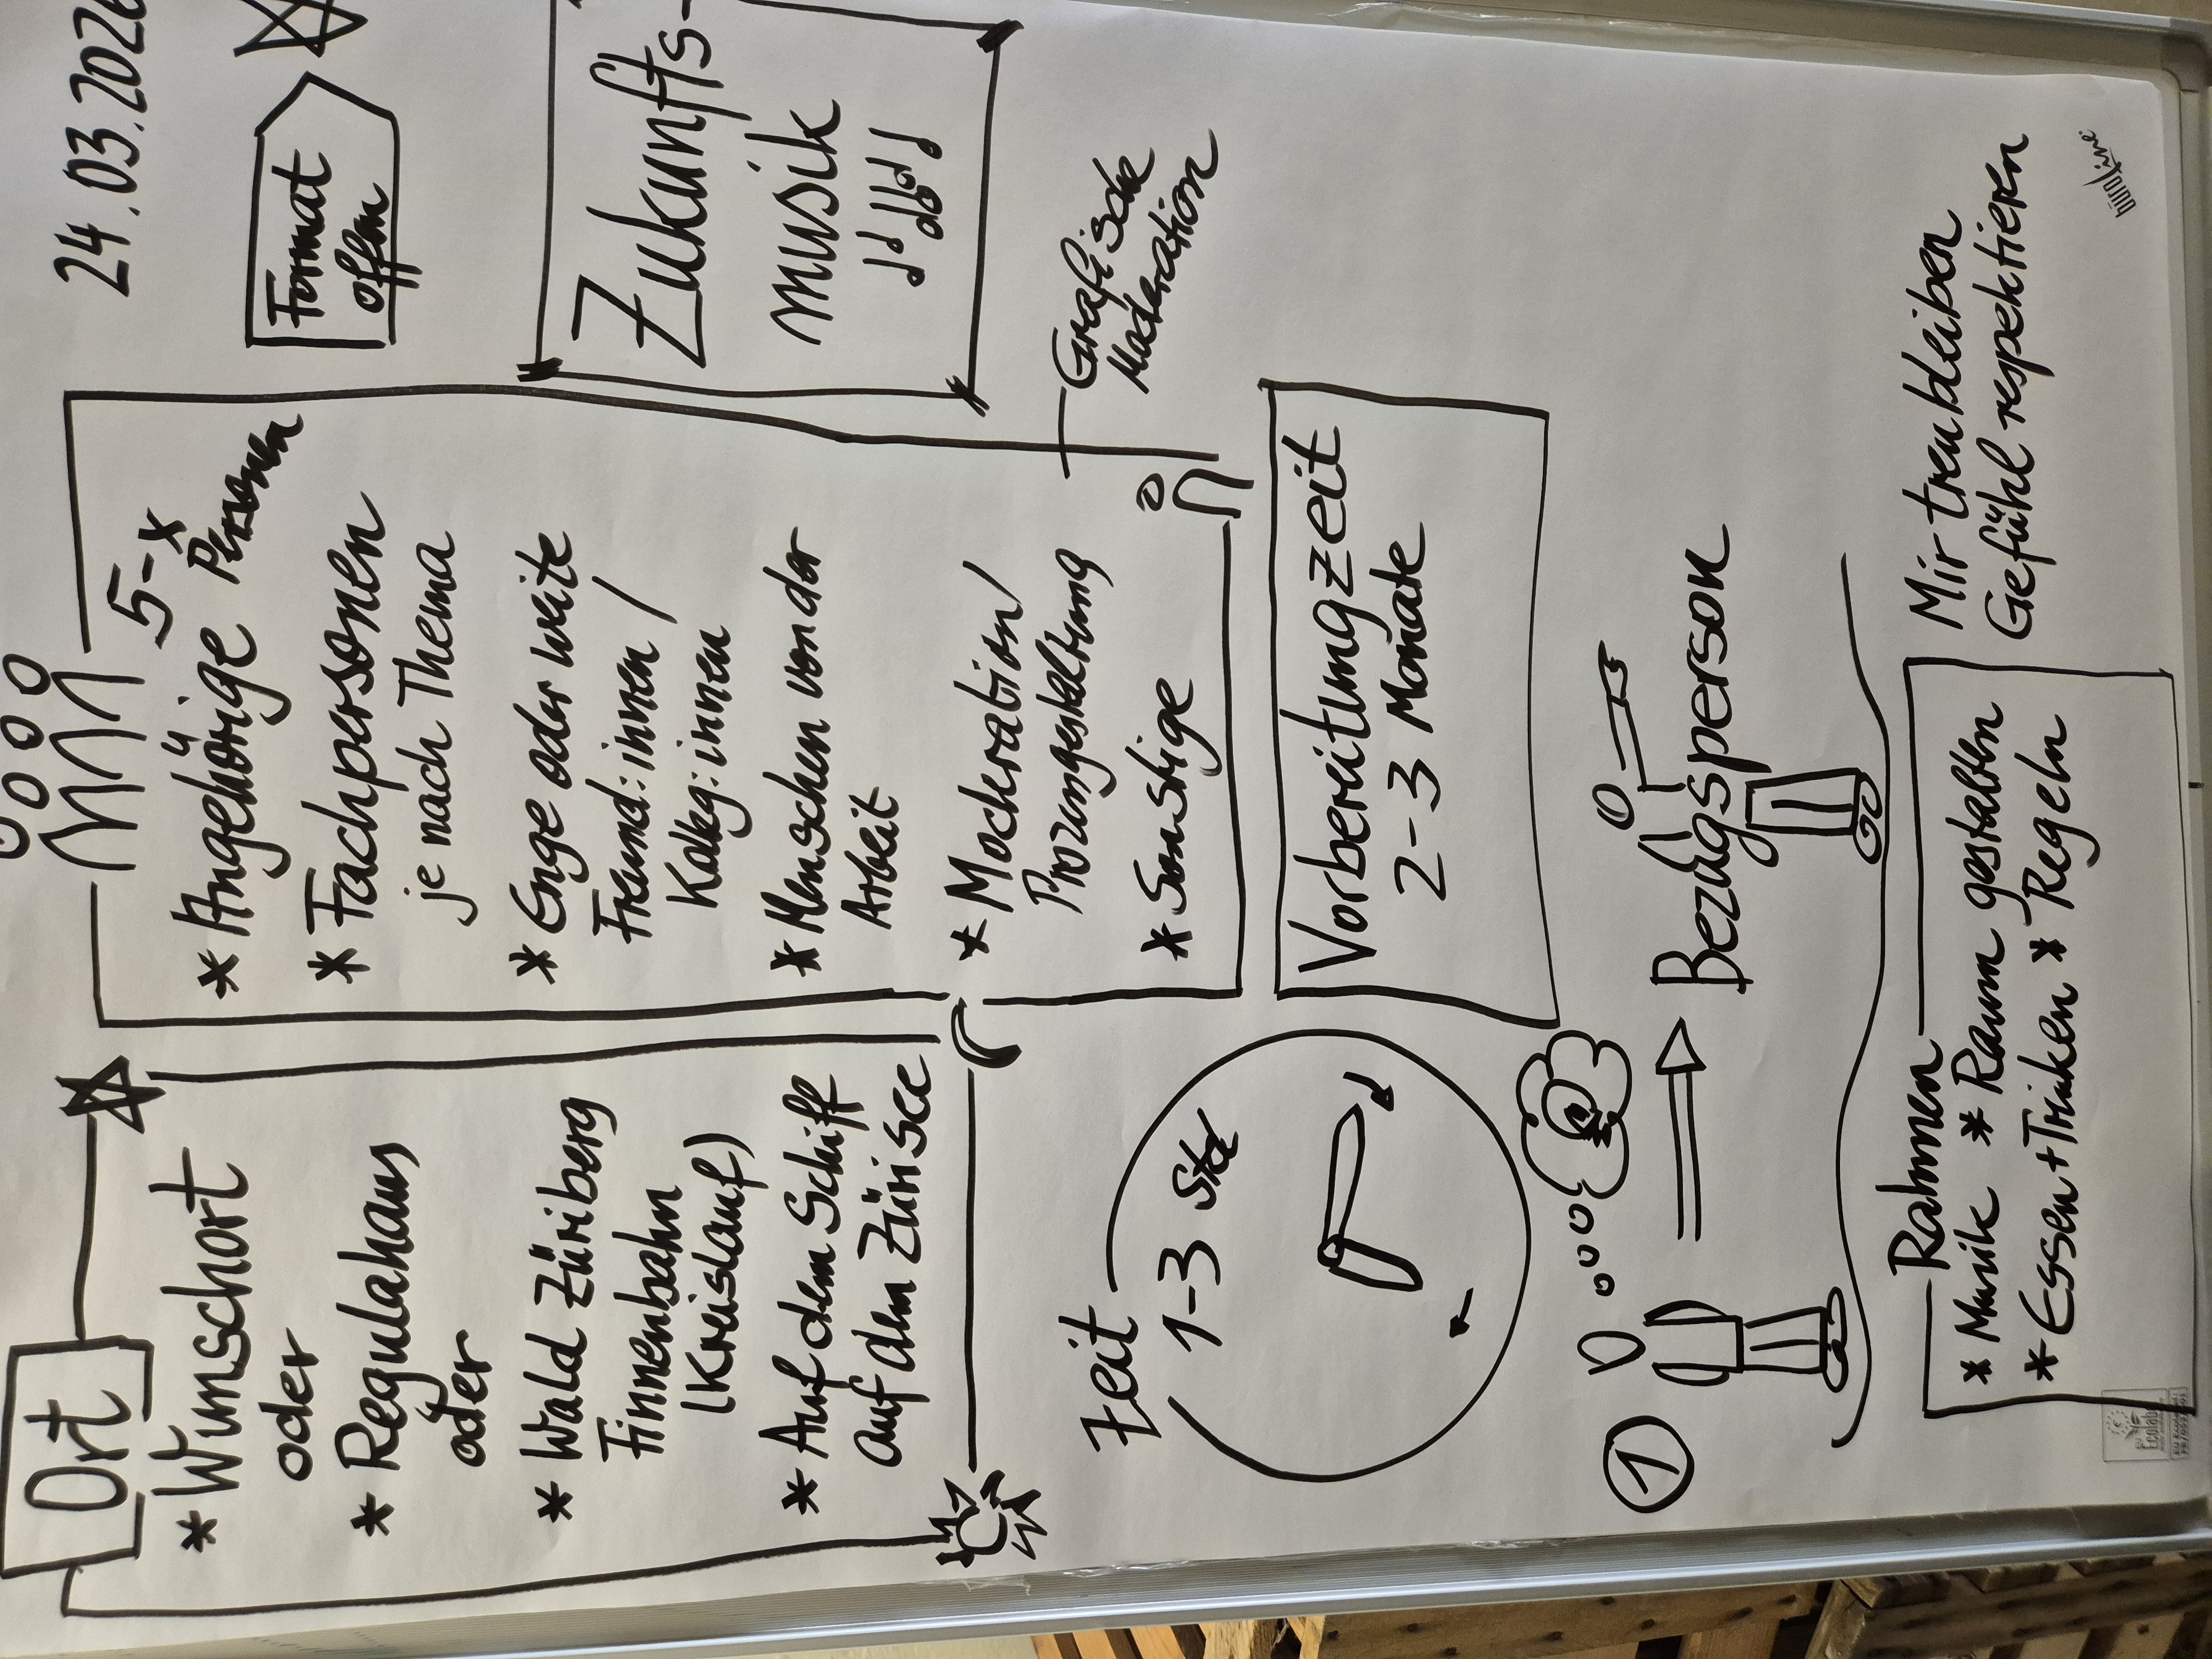 24.03.202
Ort
* Wunschort
oder
* Regulahaus
oder
* Wald Züriberg
Finnenbahn
(Kreislauf)
* Auf dem Schiff
auf dem Zürisee
5-x
Personen
* Angehörige
* Fachpersonen
je nach Thema
* Enge oder weite
Freund:innen /
Kolleg:innen
* Menschen von der
Arbeit
* Moderation/
Prozessgestaltung
* Sonstige
Format
offen
Zukunfts-
musik
Grafische
Moderation
Zeit
1-3 Std
Vorbereitungzeit
2-3 Monate
1
Bezugsperson
Rahmen
* Musik * Raum gestalten
* Essen + Trinken * Regeln
Mir treu bleiben
Gefühl respektieren
büroline
Ecolabel